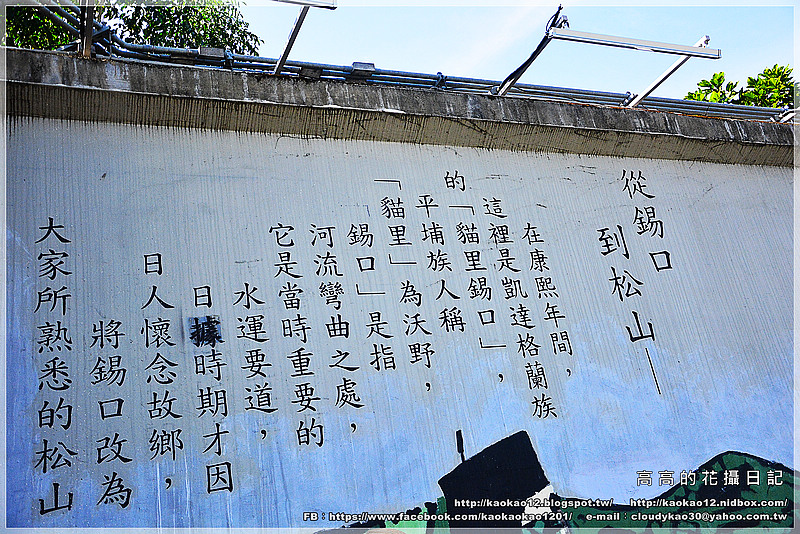 從錫口
到松山—
在康熙年間，
這裡是凱達格蘭族
的「貓里錫口」，
平埔族人稱
「貓里」為沃野，
錫口」是指
河流彎曲之處，
它是當時重要的
水運要道，
日據時期才因
日人懷念故鄉，
將錫口改為
大家所熟悉的松山
高高的花攝日記
http://kaokao12.blogspot.tw/ http://kaokao12.nidbox.com/
FB：https://www.facebook.com/kaokaokao1201/ e-mail：cloudykao30@yahoo.com.tw